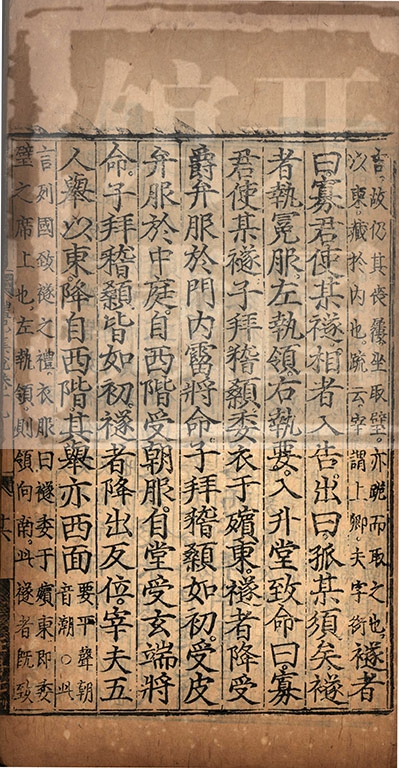 吉故仍其喪屨坐取璧亦跪而取之也襚者
以東藏於内也疏云宰謂上卿夫字衍
曰寡君使某襚相者入告出曰孤某須矣襚
者執冕服左執領右執要入升堂致命曰寡
君使某襚子拜稽顙委衣于殯東襚者降受
爵弁服於門内霤將命子拜稽顙如初受皮
弁服於中庭自西階受朝服自堂受玄端將
命子拜稽顙皆如初襚者降出反位宰夫五
人舉以東降自西階其舉亦西面要平聲朝
音潮○此
言列國致襚之禮衣服曰襚委于殯東即委
璧之席上也左執領則領向南此襚者既致